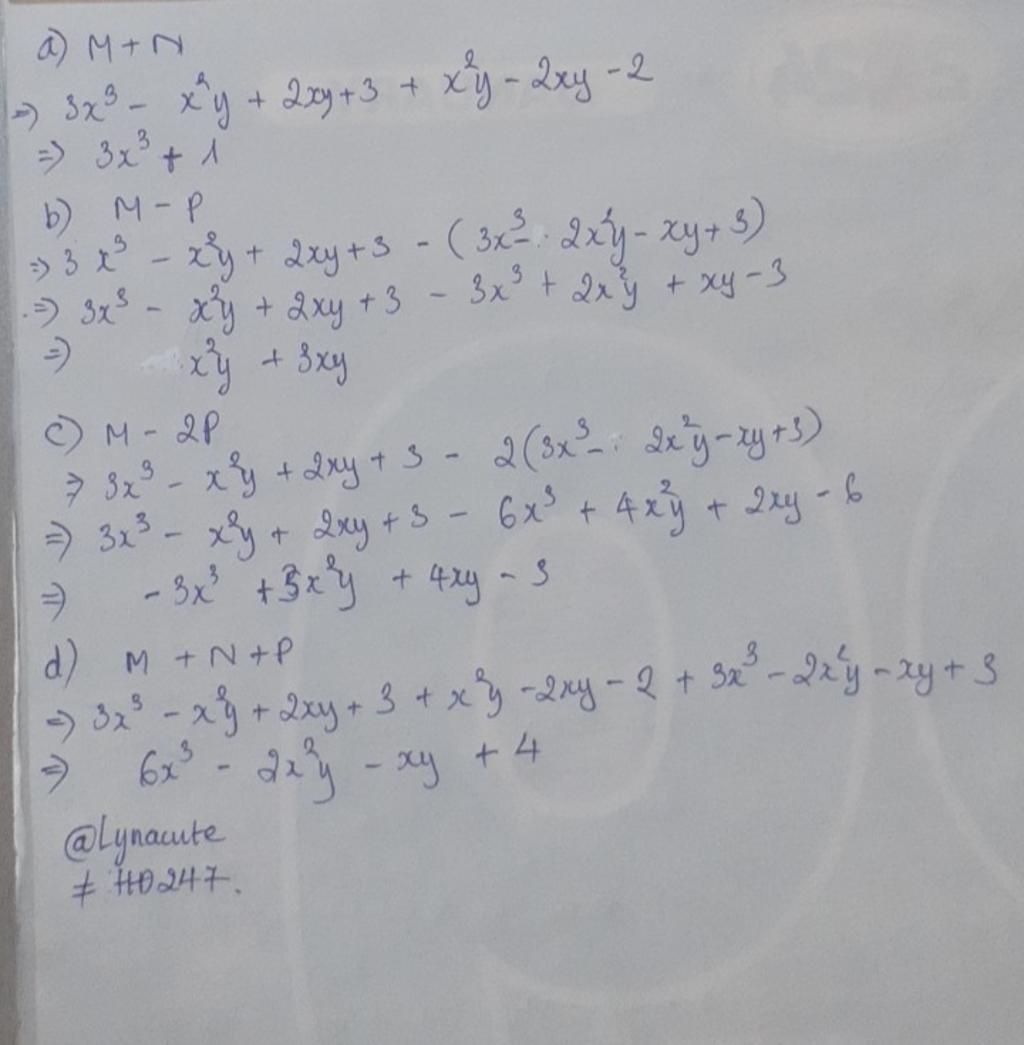 a) M + N
=> 3x³ - x²y + 2xy + 3 + x²y - 2xy - 2
=> 3x³ + 1
b) M - P
=> 3x³ - x²y + 2xy + 3 - (3x³ - 2x²y - xy + 3)
=> 3x³ - x²y + 2xy + 3 - 3x³ + 2x²y + xy - 3
=> x²y + 3xy
c) M - 2P
=> 3x³ - x²y + 2xy + 3 - 2(3x³ - 2x²y - xy + 3)
=> 3x³ - x²y + 2xy + 3 - 6x³ + 4x²y + 2xy - 6
=> - 3x³ + 3x²y + 4xy - 3
d) M + N + P
=> 3x³ - x²y + 2xy + 3 + x²y - 2xy - 2 + 3x³ - 2x²y - xy + 3
=> 6x³ - 2x²y - xy + 4
@Lynacute
≠ HD247.